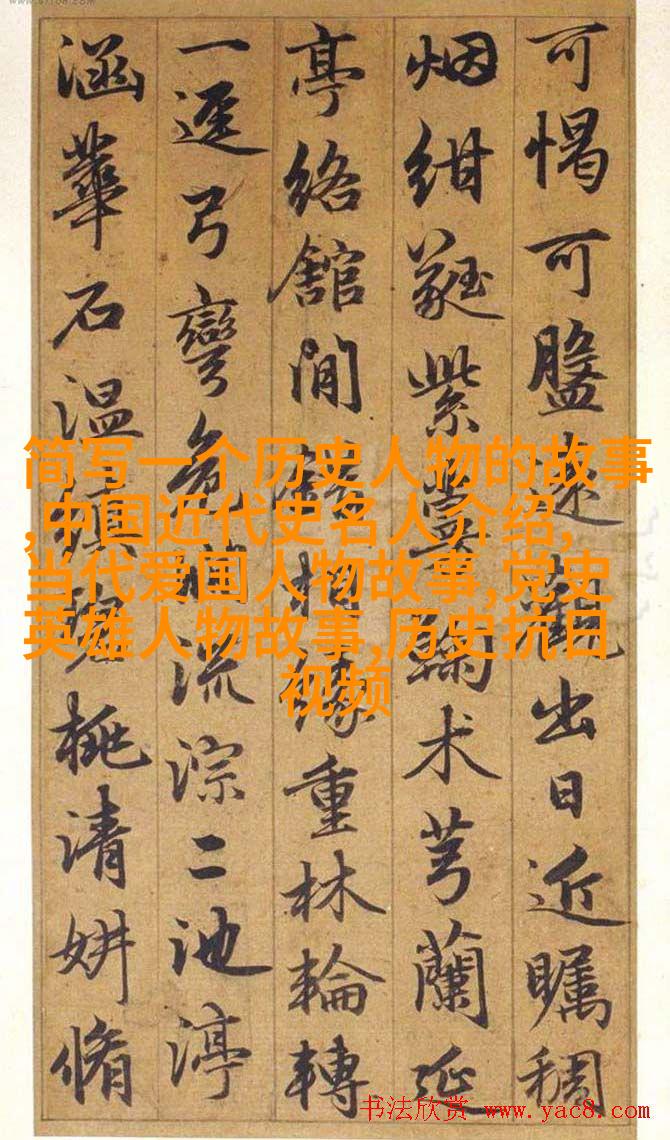 可愒可盤遠觀出日近矚稠
烟紺蕤紫术芎蘭延
亭絡舘閒相緣重林輪轉
一逕弓彎危流淙二池渟
涵華石温碧桃清妍脩
简写一个历史人物的故事
,中国近代史名人介绍,
当代爱国人物故事,党史
英雄人物故事,历史抗日
视频
书法欣赏 www.yac8.com